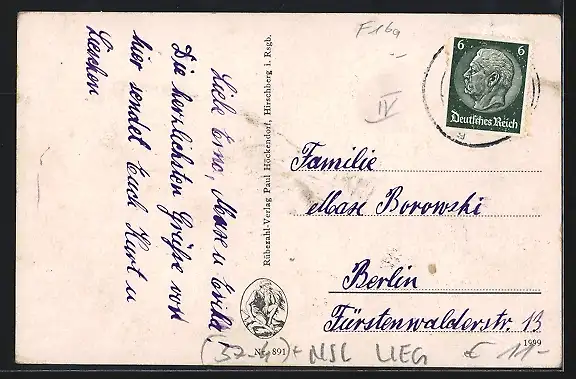 Liebe Erno, Max u Erika!
Die herzlichsten Grüße von
hier sendet Euch Kurt u
Lenchen
Rübezahl-Verlag Paul Höckendorf, Hirschberg i. Rsgb.
Nr. 891
F16a
IV
6 6
Deutsches Reich
Familie
Max Borowski
Berlin
Fürstenwalderstr. 13
1999
NSL LIEG € 11-